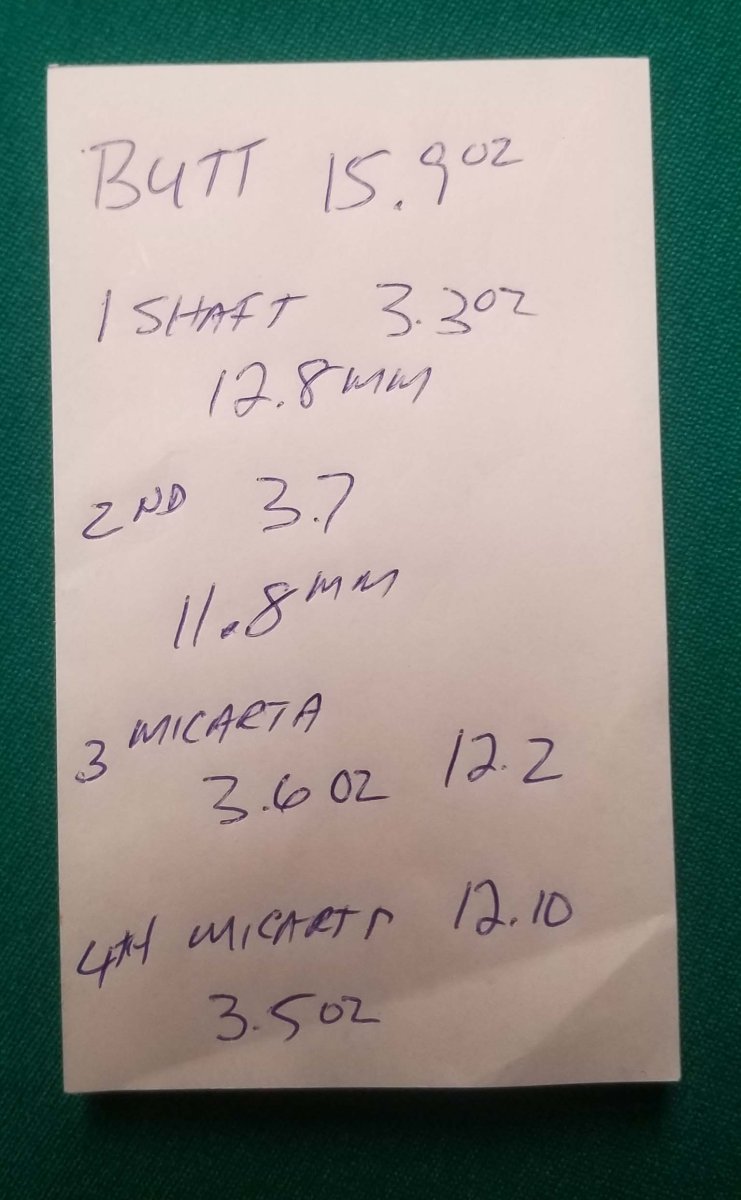 BUTT 15.9 OZ
1 SHAFT 3.3 OZ
12.8 MM
2ND 3.7
11.8 MM
3 MICARTA
3.6 OZ 12.2
4TH MICARTA 12.10
3.5 OZ